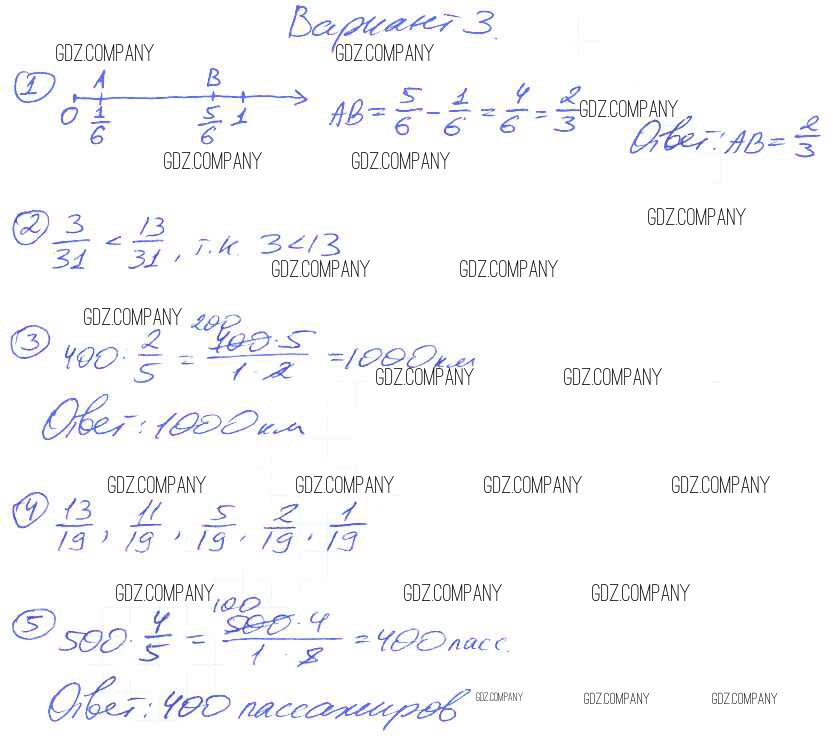 Вариант 3.
GDZ.COMPANY GDZ.COMPANY
① A B
0 1/6 5/6 1 AB = 5/6 - 1/6 = 4/6 = 2/3 GDZ.COMPANY
Ответ: AB = 2/3
GDZ.COMPANY GDZ.COMPANY
GDZ.COMPANY
② 3/31 < 13/31, т.к. 3<13
GDZ.COMPANY GDZ.COMPANY
GDZ.COMPANY
200
③ 400 · 2/5 = 400·5/1·2 = 1000 км
GDZ.COMPANY GDZ.COMPANY
Ответ: 1000 км
GDZ.COMPANY GDZ.COMPANY GDZ.COMPANY GDZ.COMPANY
④ 13/19, 11/19, 5/19, 2/19, 1/19
GDZ.COMPANY GDZ.COMPANY GDZ.COMPANY
100
⑤ 500 · 4/5 = 500·4/1·5 = 400 пасс.
Ответ: 400 пассажиров
GDZ.COMPANY GDZ.COMPANY GDZ.COMPANY